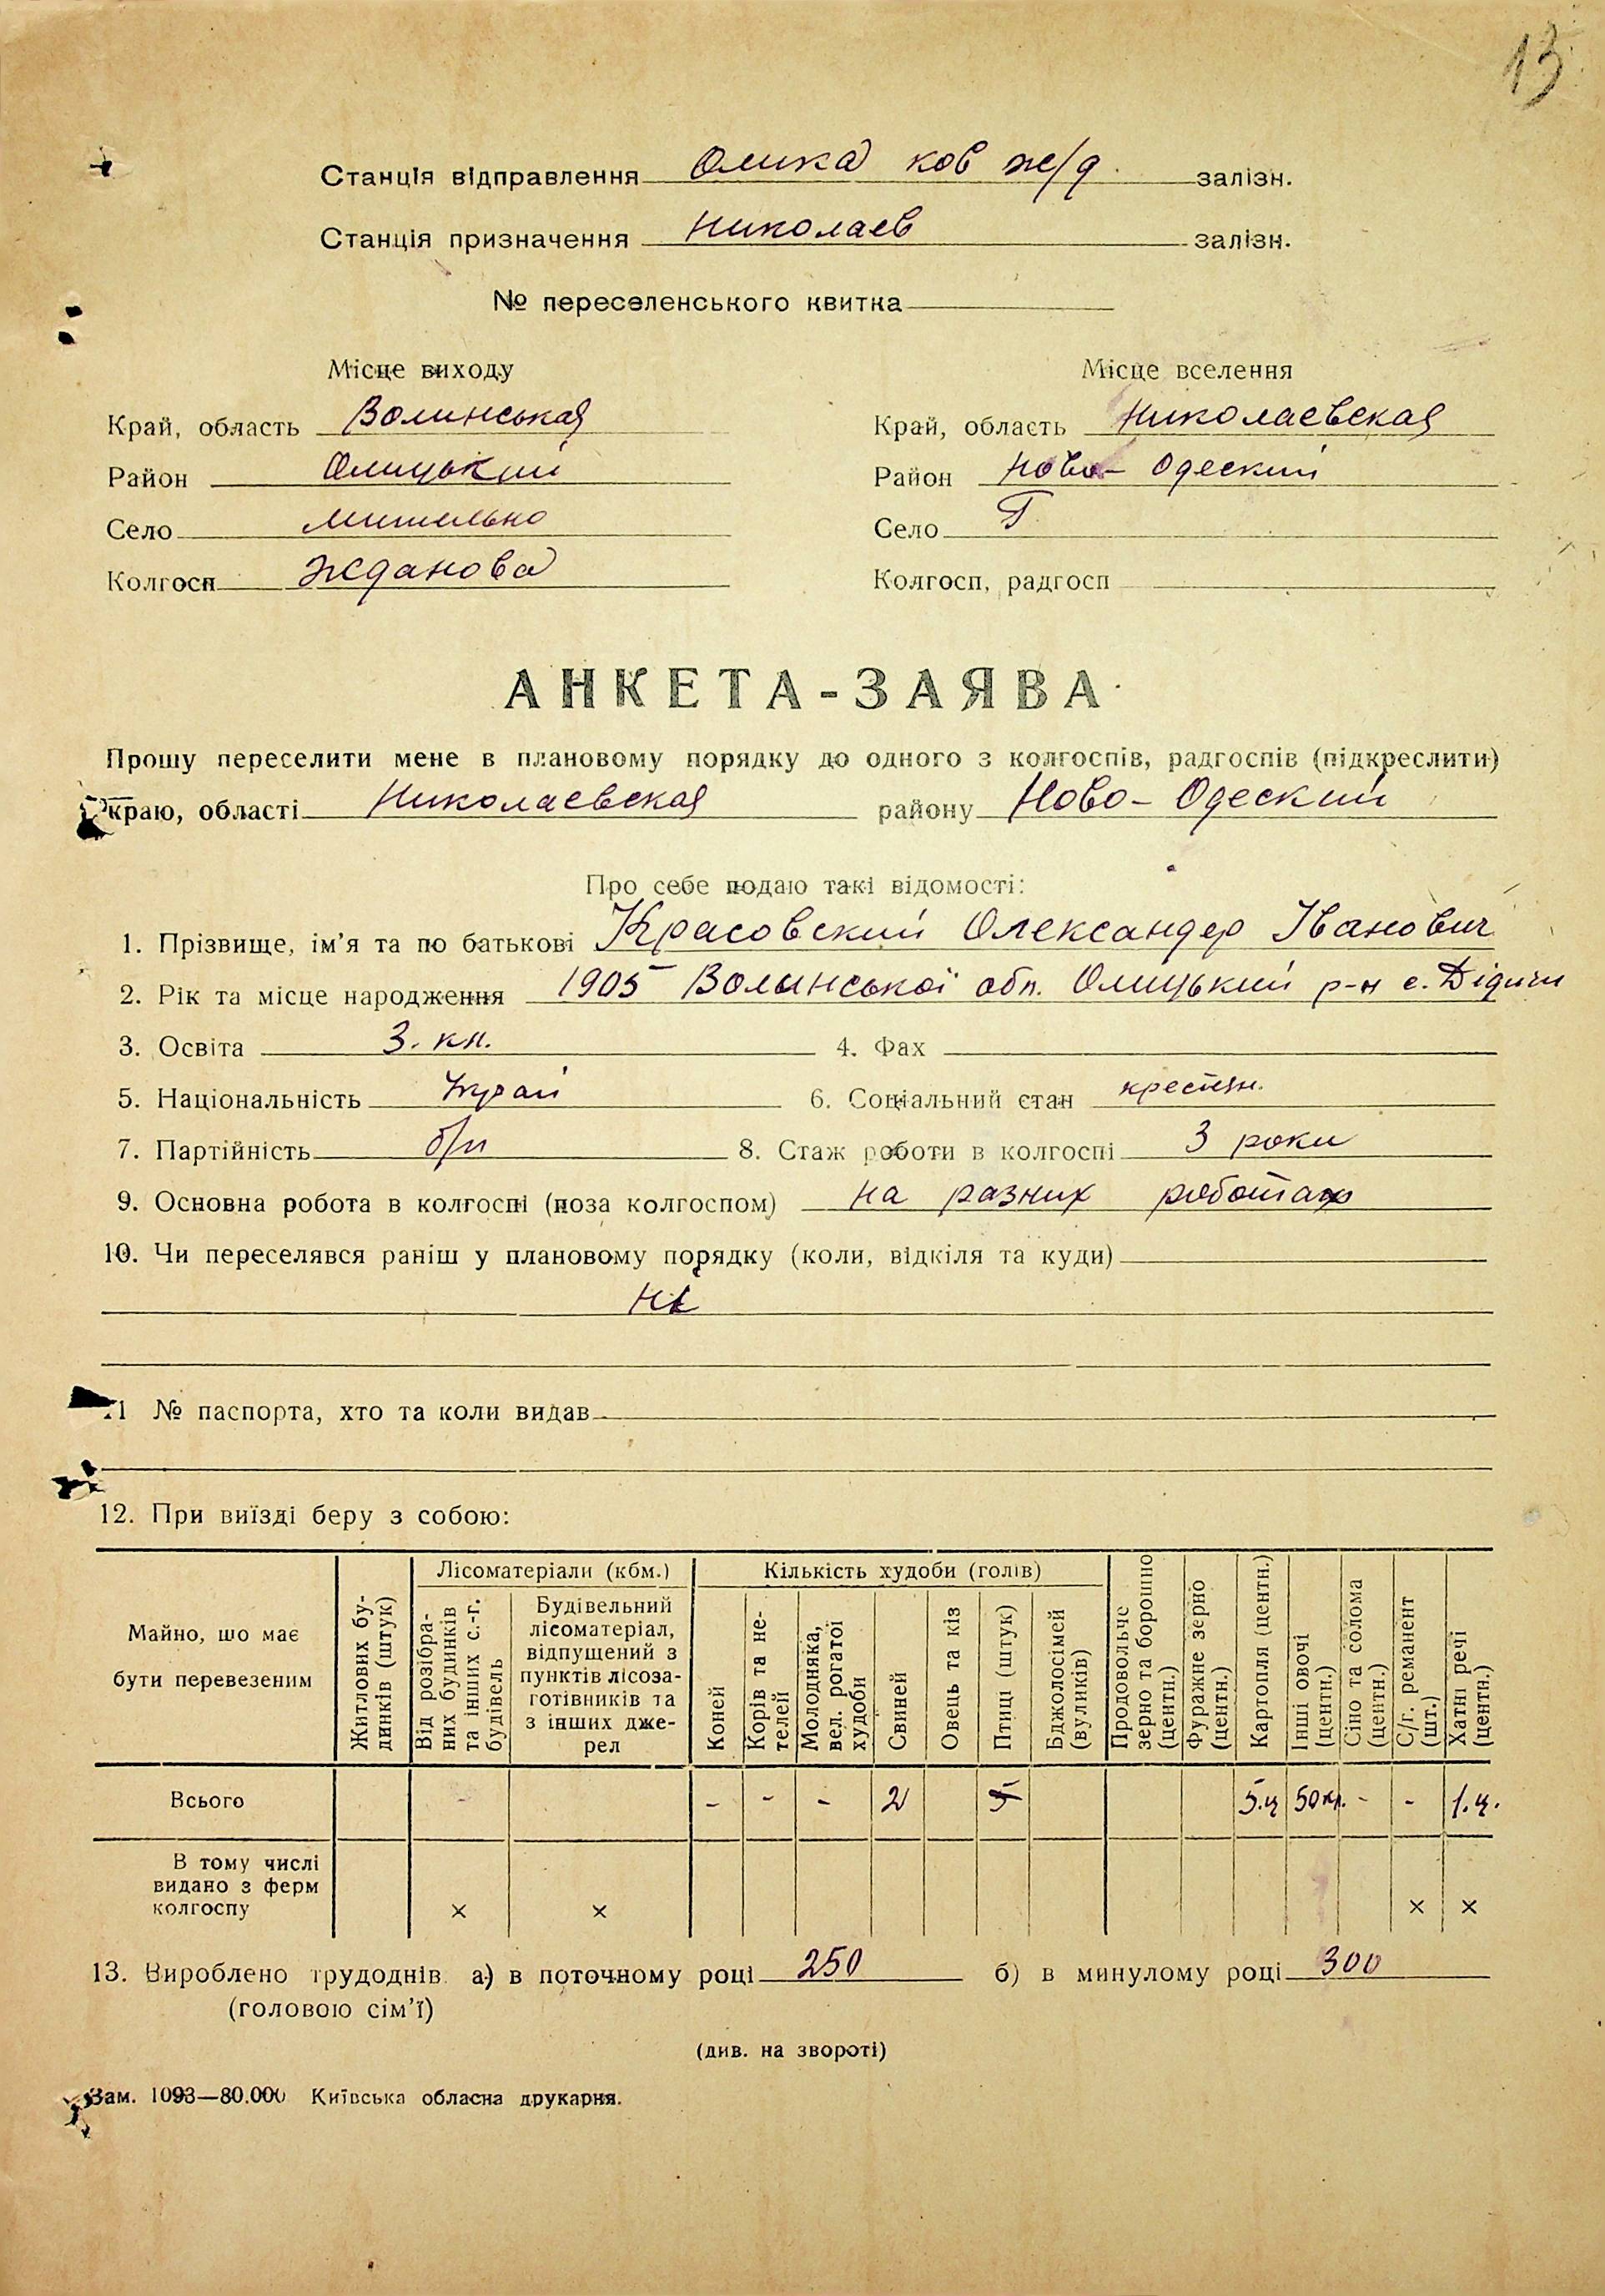 13
Станція відправлення Олика ков ж/д залізн.
Станція призначення Николаев залізн.
№ переселенського квитка
Місце виходу Місце вселення
Край, область Волинськая Край, область Николаевская
Район Олицький Район Ново-Одеский
Село Мительно Село Г
Колгосп Жданова Колгосп, радгосп
АНКЕТА-ЗАЯВА
Прошу переселити мене в плановому порядку до одного з колгоспів, радгоспів (підкреслити)
краю, області Николаевская району Ново-Одеский
Про себе подаю такі відомості:
1. Прізвище, ім'я та по батькові Красовский Олександер Іванович
2. Рік та місце народження 1905 Волынської обл. Олицький р-н с. Дідичи
3. Освіта 3. кл. 4. Фах
5. Національність 6. Соціальний стан крестян.
7. Партійність б/п 8. Стаж роботи в колгоспі 3 роки
9. Основна робота в колгоспі (поза колгоспом) на разних роботах
10. Чи переселявся раніш у плановому порядку (коли, відкіля та куди)
Ні
11 № паспорта, хто та коли видав
12. При виїзді беру з собою:
Майно, що має бути перевезеним
Житлових будинків (штук)
Лісоматеріали (кбм.)
Від розібраних будинків та інших с.-г. будівель
Будівельний лісоматеріал, відпущений з пунктів лісозаготівників та з інших джерел
Кількість худоби (голів)
Коней
Корів та нетелей
Молодняка, вел. рогатої худоби
Свиней
Овець та кіз
Птиці (штук)
Бджолосімей (вуликів)
Продовольче зерно та борошно (центн.)
Фуражне зерно (центн.)
Картопля (центн.)
Інші овочі (центн.)
Сіно та солома (центн.)
С/г. реманент (шт.)
Хатні речі (центн.)
Всього - - - - 2 5 5.ц 50кл. - - 1.ц.
В тому числі видано з ферм колгоспу × × × ×
13. Вироблено трудоднів а) в поточному році 250 б) в минулому році 300
(головою сім'ї)
(див. на звороті)
Зам. 1093—80.000 Київська обласна друкарня.